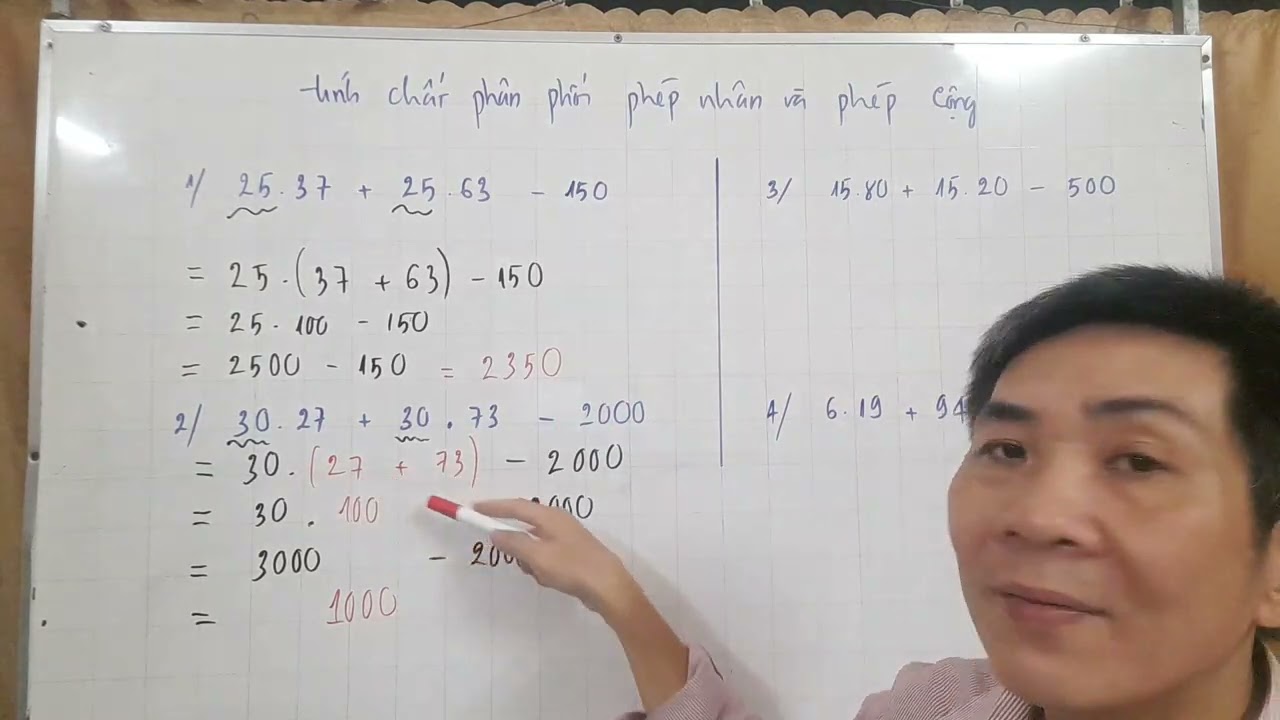 tính chất phân phối phép nhân và phép cộng
1/ 25.37 + 25.63 - 150
= 25.(37 + 63) - 150
= 25.100 - 150
= 2500 - 150 = 2350
2/ 30.27 + 30.73 - 2000
= 30.(27 + 73) - 2000
= 30.100
= 3000 - 200
= 1000
3/ 15.80 + 15.20 - 500
4/ 6.19 + 94